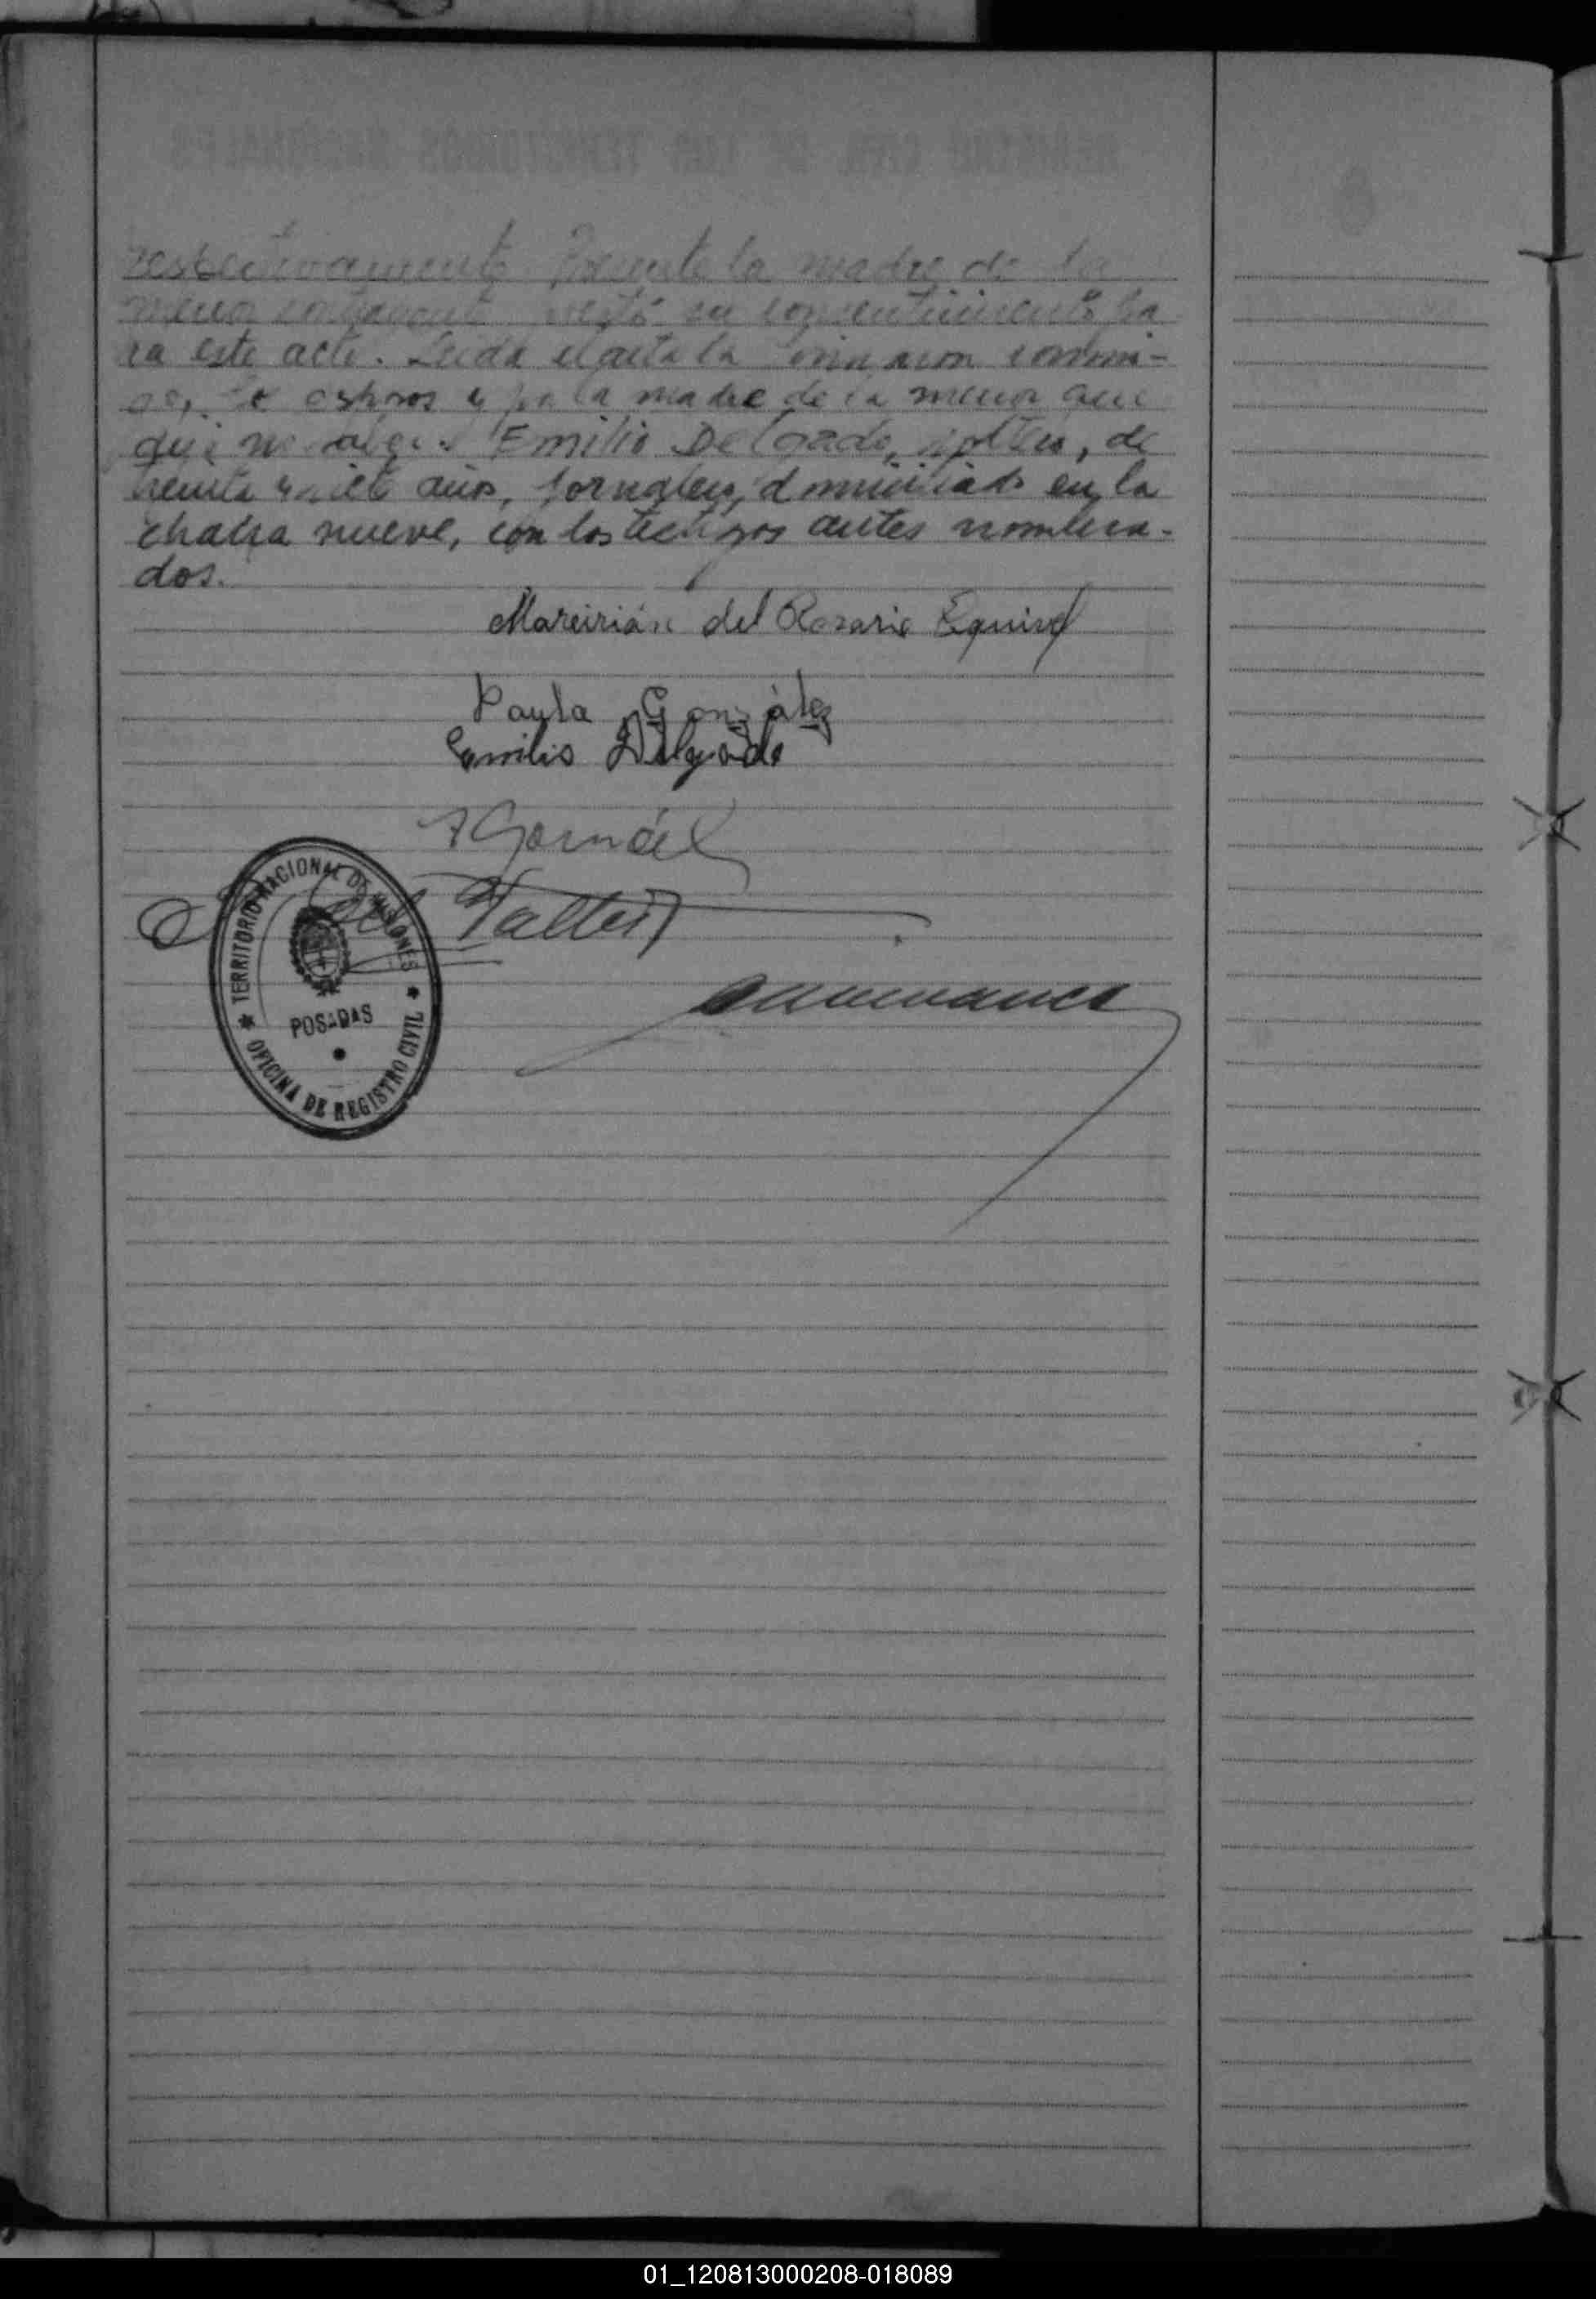 respectivamente. Presente la madre de la
menor contrayente prestó su consentimiento pa
ra este acto. Leida el acta la firmaron conmi-
go, los esposos y por la madre de la menor que
dijo no saber Emilio Delgado, soltero, de
treinta y siete años, jornalero, domiciliado en la
chacra nueve, con los testigos antes nombra-
dos.
del Rosario Esquivel
Paula González
Emilio Delgado
TERRITORIO NACIONAL DE MISIONES
POSADAS
OFICINA DE REGISTRO CIVIL
01_120813000208-018089